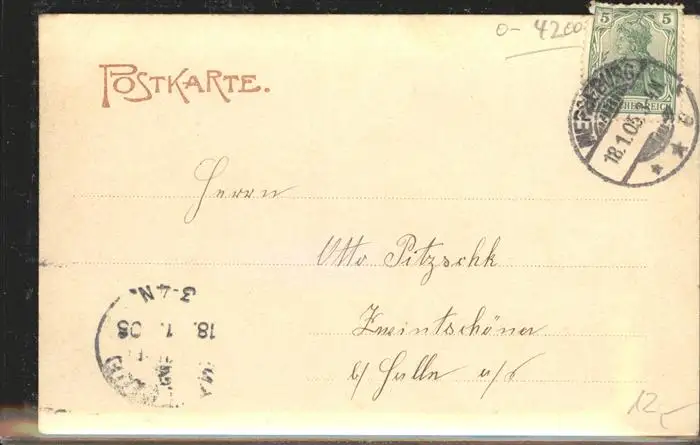 0- 4200
5 5
POSTKARTE.
MERSEBURG
18.1.05
Herrn
Otto Pitzschk
Zwintschöna
b/ Halle a/S
3-4N.
18. 1. 05
12,-